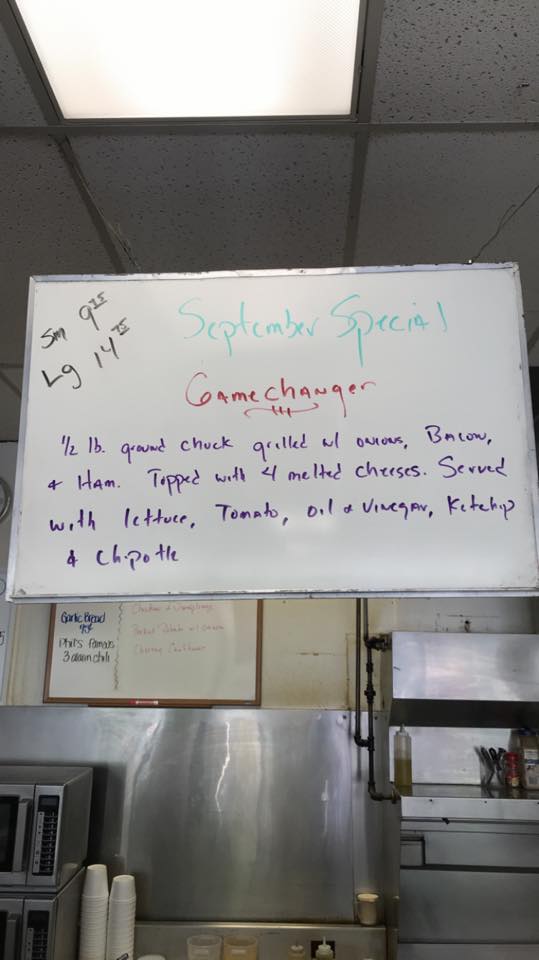 Sm 9 75
Lg 14 75
September Special
Gamechanger
1/2 lb. ground chuck grilled w/ onions, Bacon,
& Ham. Topped with 4 melted cheeses. Served
with lettuce, Tomato, oil & vinegar, Ketchup
& Chipotle
Garlic Bread
Phil's Famous
3 alarm chili